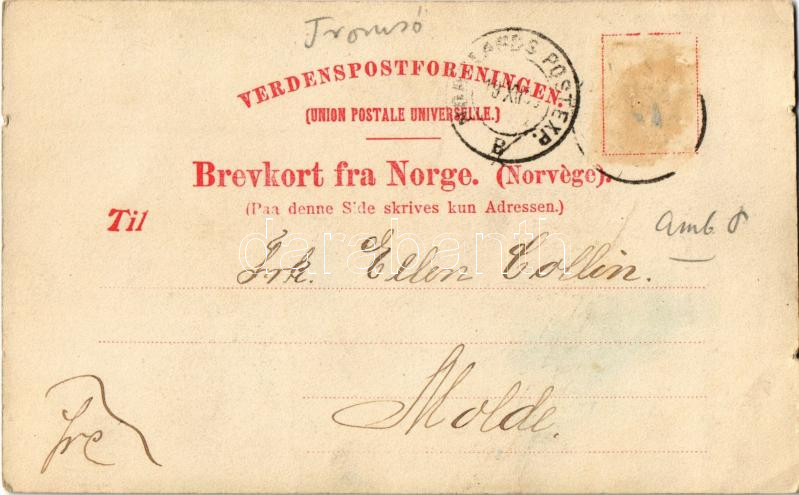 Tromsö
VERDENSPOSTFORENINGEN.
(UNION POSTALE UNIVERSELLE.)
POSTEXP.
B
Brevkort fra Norge. (Norvège).
Til
(Paa denne Side skrives kun Adressen.)
amb
darabanth
Frk. Ellen Collin.
Molde.